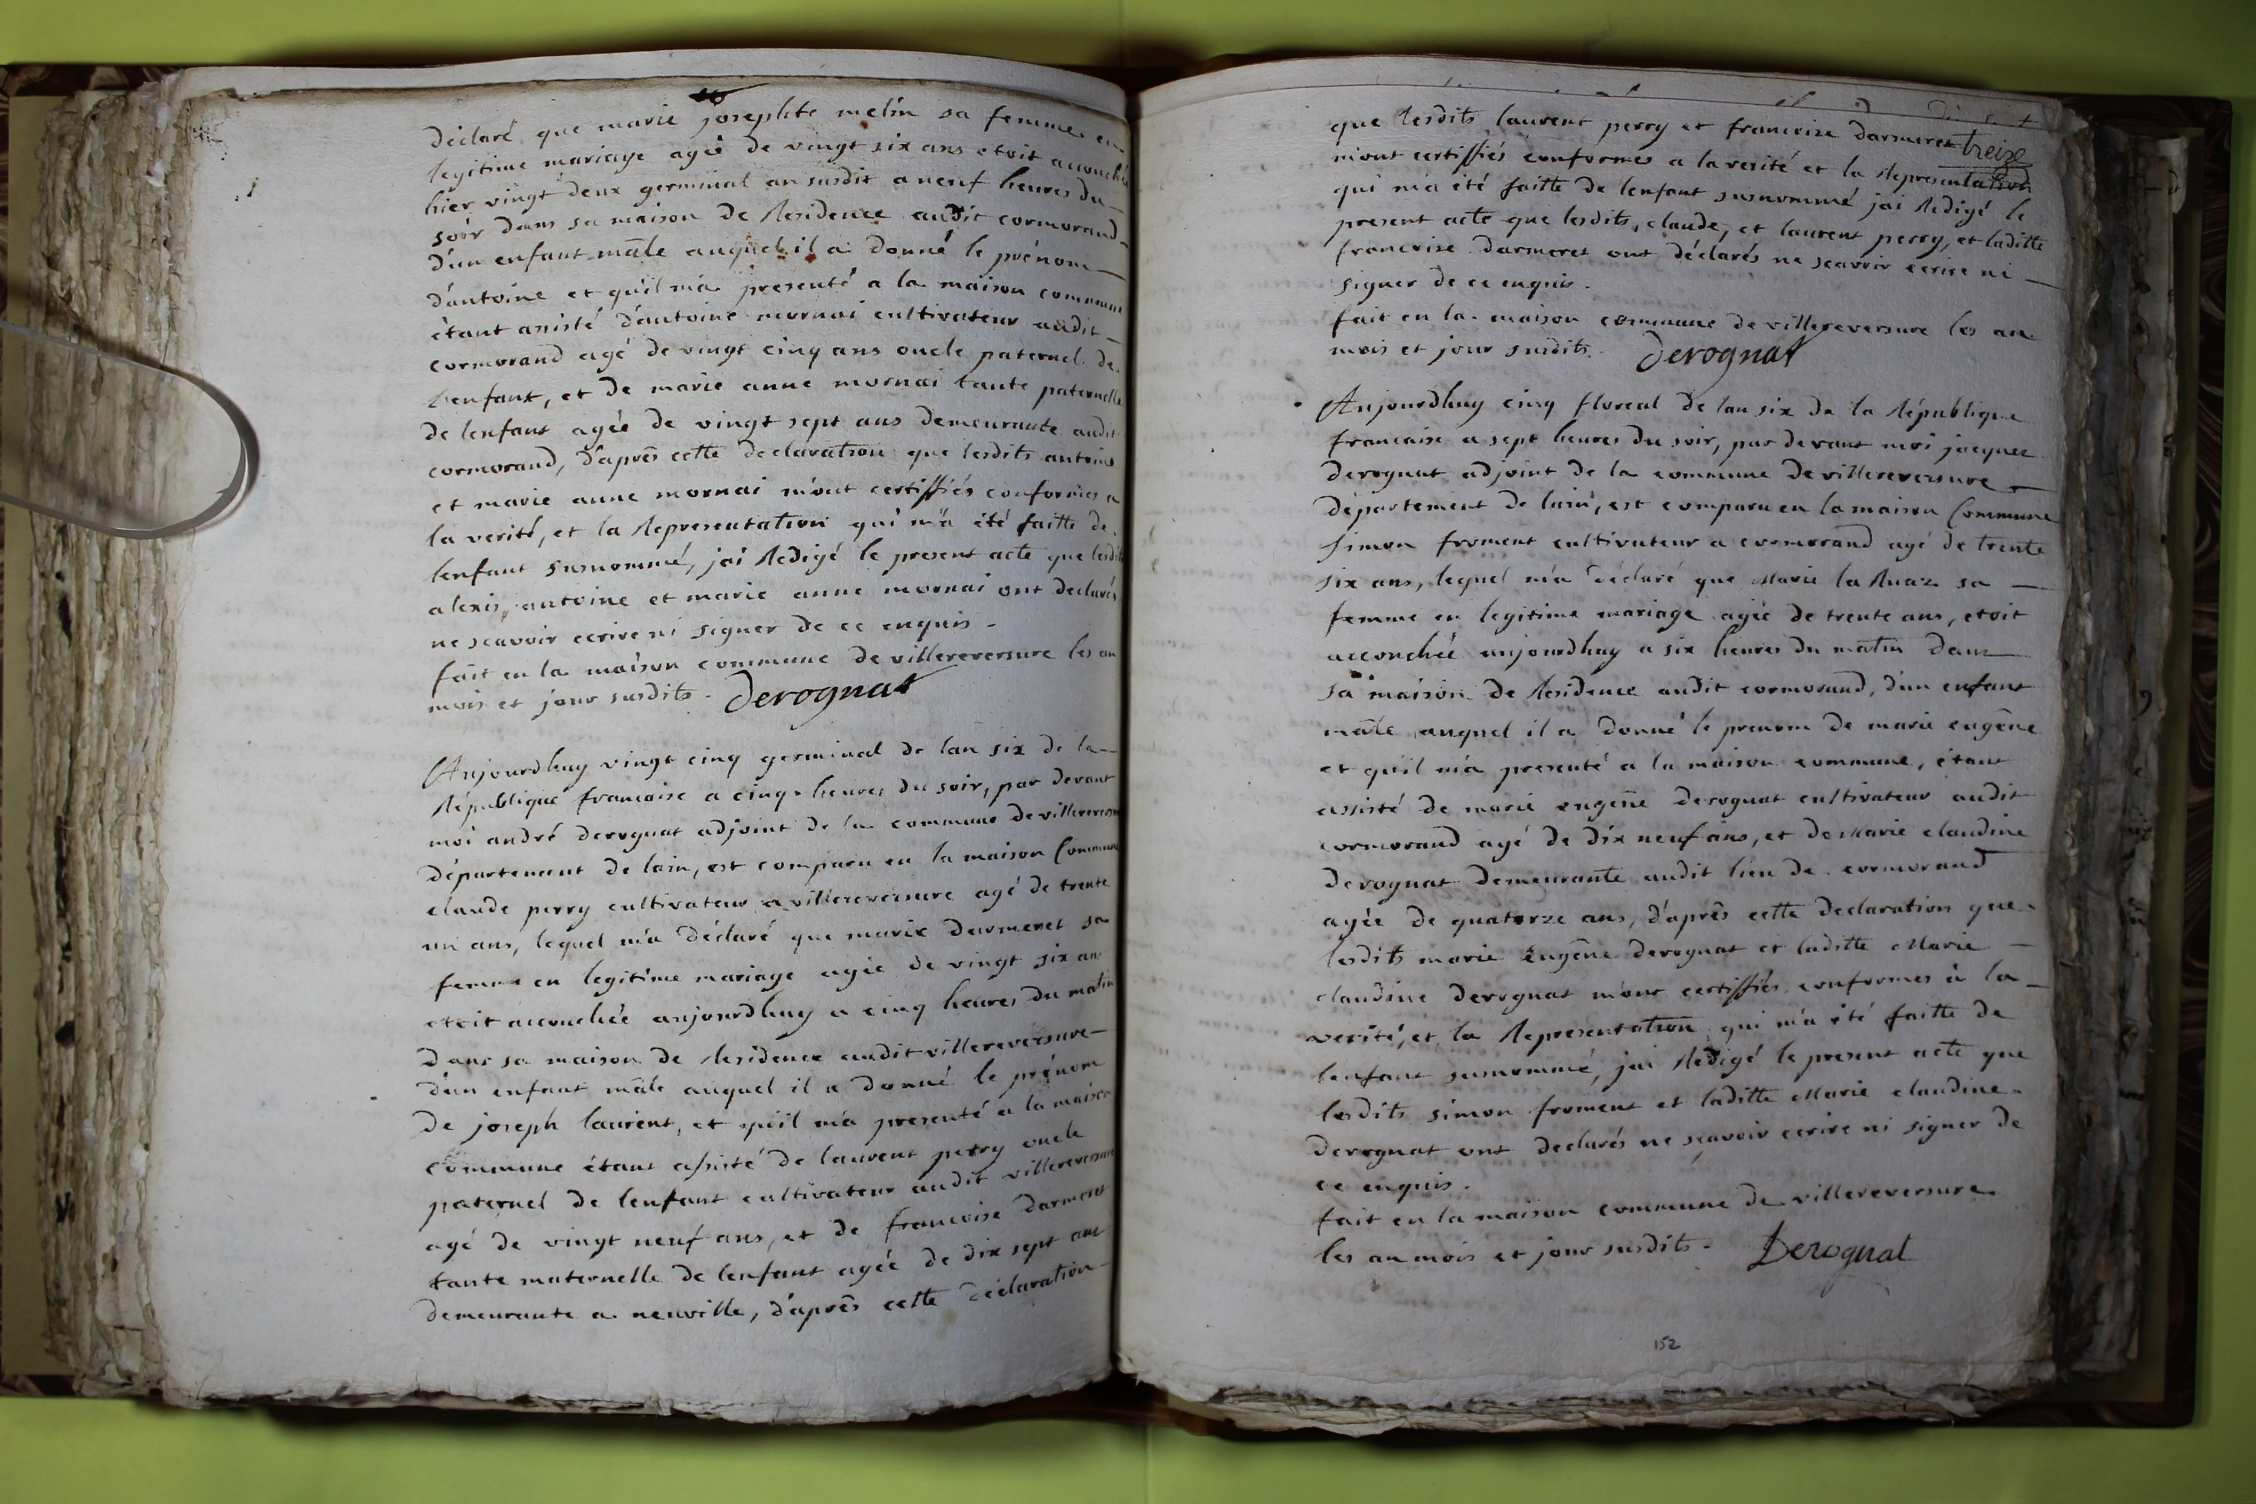 déclaré que marie josephte melin sa femme en
legitime mariage agée de vingt six ans etoit accouchée
hier vingt deux germinal an susdit a neuf heures du
soir dans sa maison de Residence audit cormorand
d'un enfant mâle auquel il a donné le prénom
d'antoine et qu'il m'a presenté a la maison commune
étant assisté d'antoine mornai cultivateur audit
cormorand agé de vingt cinq ans oncle paternel de
l'enfant, et de marie anne mornai tante paternelle
de lenfant agée de vingt sept ans demeurante audit
cormorand, d'aprês cette declaration que lesdits antoine
et marie anne mornai m'ont certiffiés conformes a
la verité, et la Representation qui m'a été faitte de
lenfant susnommé, j'ai Redigé le present acte que lesdits
alexis, antoine et marie anne mornai ont declarés
ne sçavoir ecrire ni signer de ce enquis.
fait en la maison commune de villereversure les an
mois et jour susdits. Derognat
Aujourdhuy vingt cinq germinal de lan six de la
République francaise a cinq heures du soir, par devant
moi andré derognat adjoint de la commune de villereversure
département de lain, est comparu en la maison Commune
claude perry cultivateur a villereversure agé de trente
un ans, lequel m'a déclaré que marie Darmeret sa
femme en legitime mariage agée de vingt six ans
etoit accouchée aujourdhuy a cinq heures du matin
dans sa maison de Residence audit villereversure
d'un enfant mâle auquel il a donné le prénom
de joseph laurent, et qu'il m'a presenté a la maison
commune étant assisté de laurent perry oncle
paternel de lenfant cultivateur audit villereversure
agé de vingt neuf ans, et de francoise darmeret
tante maternelle de lenfant agée de dix sept ans
demeurante a neuville, d'aprês cette déclaration
treize
que lesdits laurent perry et francoise darmeret
m'ont certiffiés conformes a la verité et la Representation
qui m'a été faitte de lenfant susnommé j'ai Redigé le
present acte que lesdits, claude, et laurent perry, et laditte
francoise darmeret ont déclarés ne sçavoir ecrire ni
signer de ce enquis.
fait en la maison commune de villereversure les an
mois et jour susdits. Derognat
Aujourdhuy cinq floreal de lan six de la République
francaise a sept heures du soir, par devant moi jacques
derognat adjoint de la commune de villereversure
département de lain, est comparu en la maison Commune
Simon froment cultivateur a cormorand agé de trente
six ans, lequel m'a déclaré que Marie la Ruaz sa
femme en legitime mariage agée de trente ans, etoit
accouchée aujourdhuy a six heures du matin dans
sa maison de Residence audit cormorand, d'un enfant
mâle auquel il a donné le prenom de marie eugêne
et qu'il m'a presenté a la maison commune, étant
assisté de marie eugêne derognat cultivateur audit
cormorand agé de dix neuf ans, et de Marie claudine
derognat demeurante audit lieu de cormorand
agée de quatorze ans, d'aprês cette declaration que
lesdits marie Eugêne derognat et laditte Marie
claudine derognat m'ont certiffiés conformes à la
verité, et la Representation qui m'a été faitte de
lenfant susnommé, j'ai Redigé le present acte que
lesdits simon froment et laditte Marie claudine
derognat ont declarés ne sçavoir ecrire ni signer de
ce enquis.
fait en la maison commune de villereversure
les an mois et jour susdits. Derognat
152